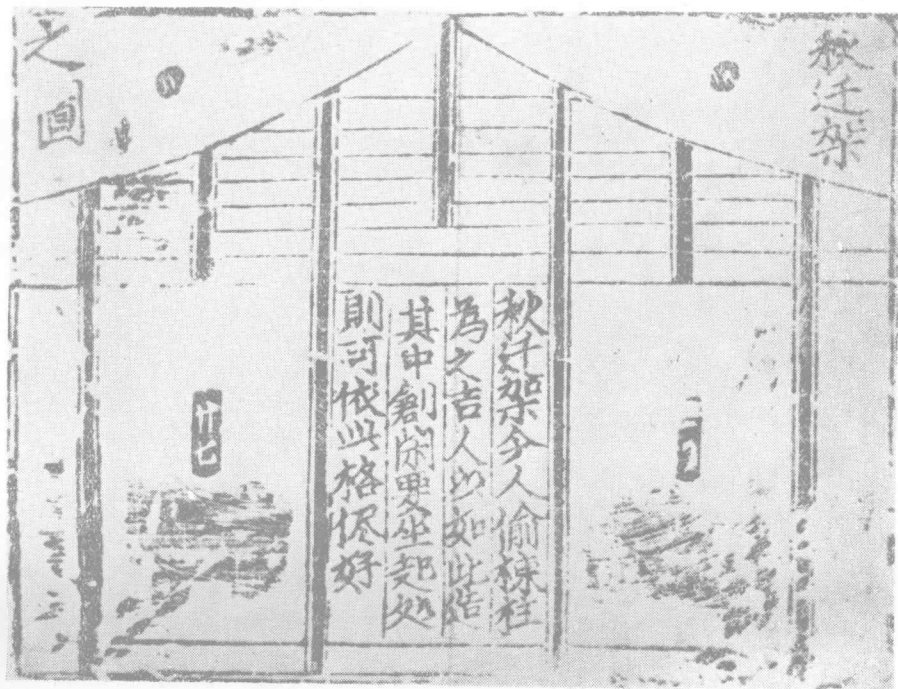 秋迁架
秋迁架今人偷棟柱
為之吉人以如此造
其中創閑要坐起処
則可依此格侭好
廿七
之圖